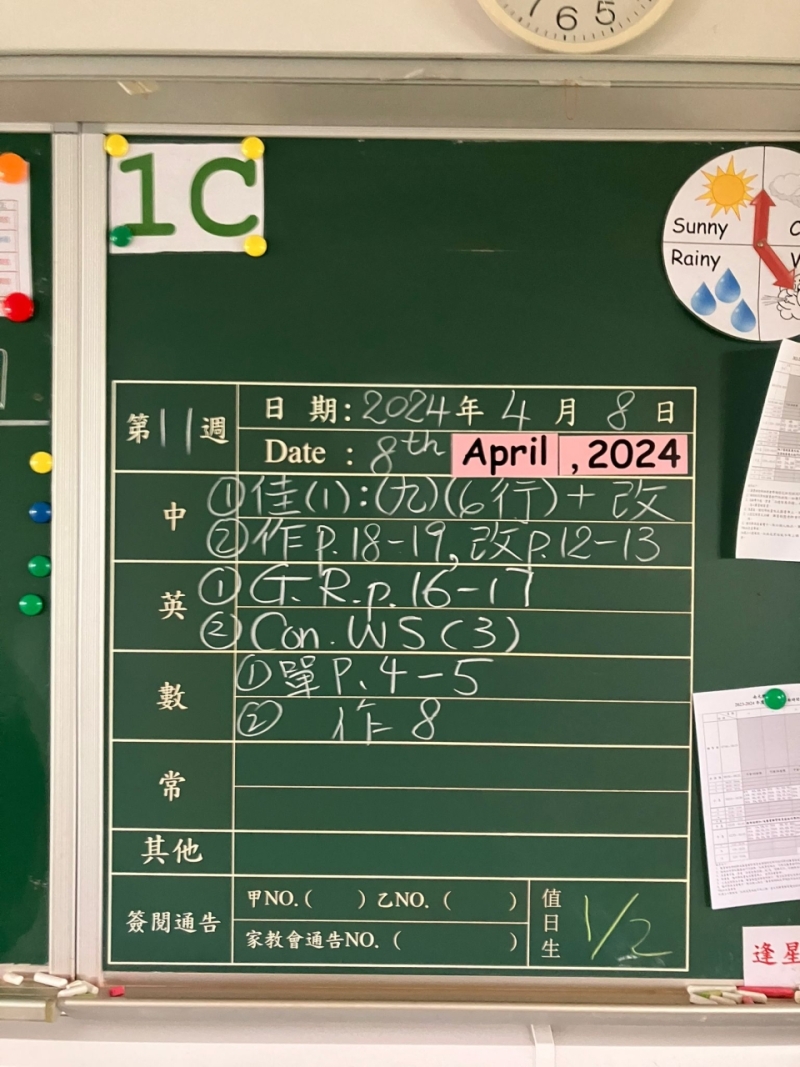 6 5
1C
Sunny
Rainy
第11週
日 期:2024年 4 月 8 日
Date : 8th April , 2024
中
①佳(1):(九)(6行)+改
②作P.18-19,改P.12-13
英
①G.R.p.16-17
②Con.WS(3)
數
①單P.4-5
② 作8
常
其他
簽閱通告
甲NO.( ) 乙NO. ( )
家教會通告NO. ( )
值日生
1/2
逢星